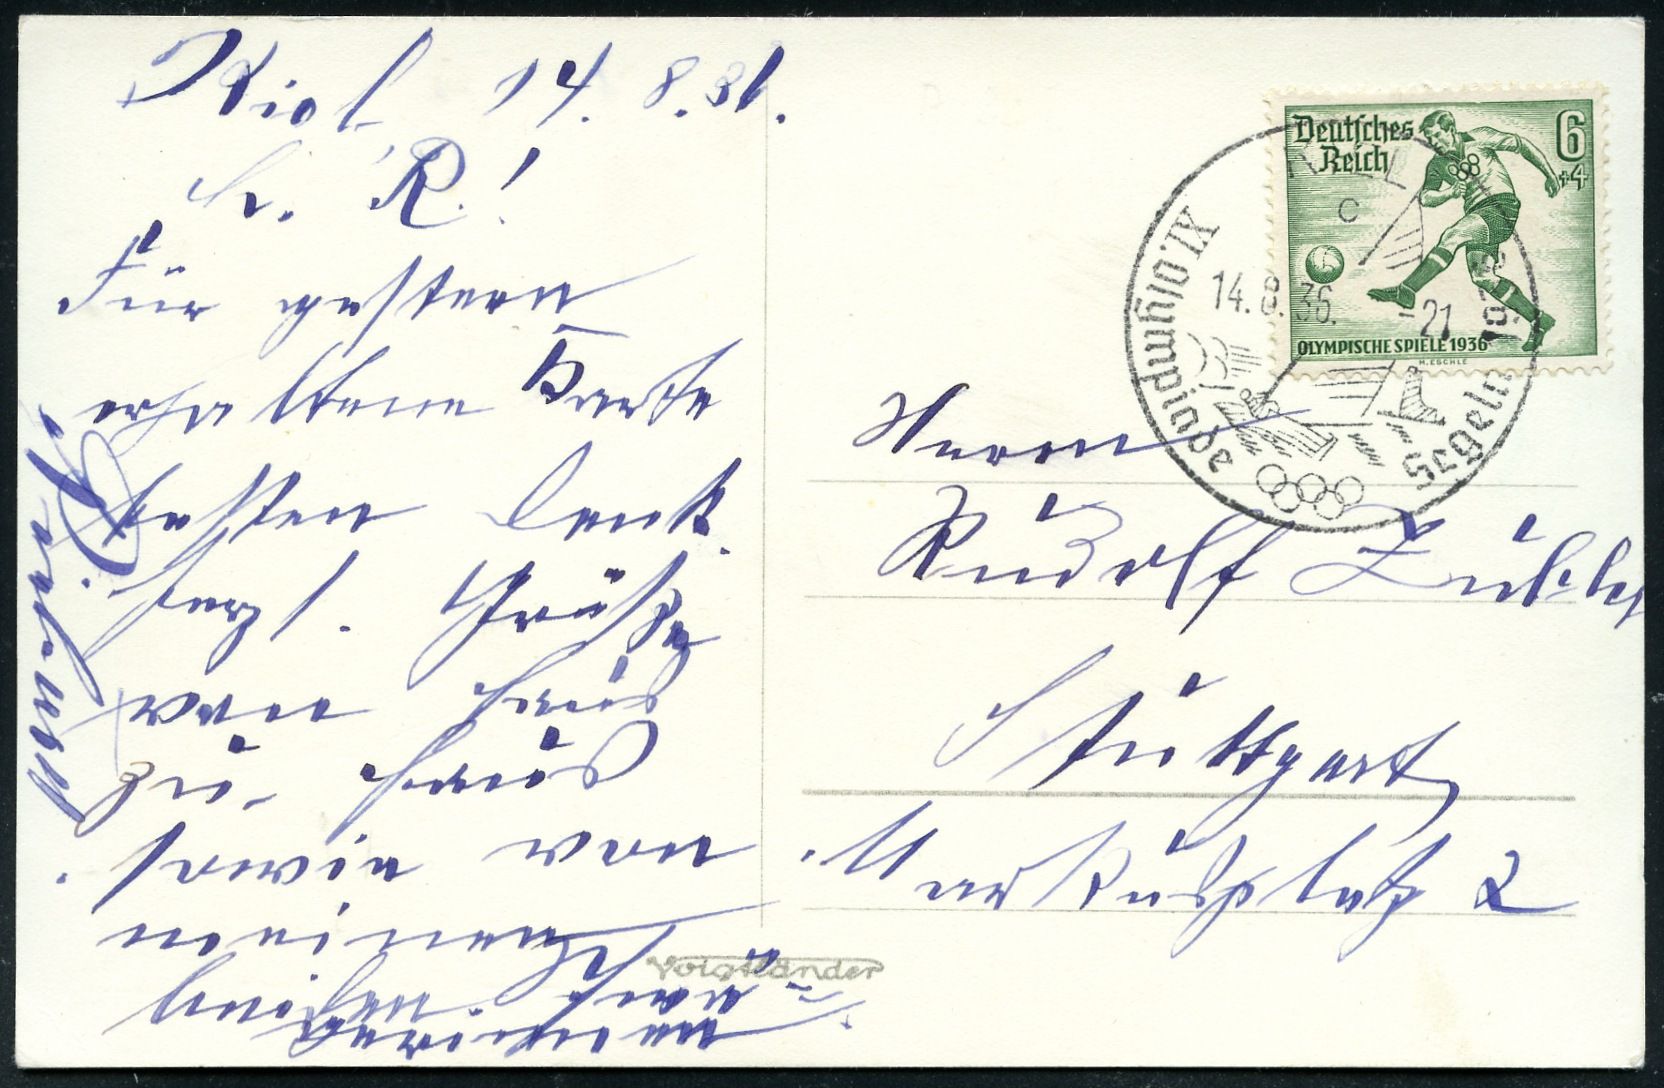 Kiel 14.8.36.
L. R.!
Für gestern
erhaltene Karte
besten Dank.
Herzl. Grüße
von Haus
zu Haus
sowie von
meinen
Herrn
Rudolf
Stuttgart
Markusplatz 2
Deutsches
Reich
6
+4
OLYMPISCHE SPIELE 1936
M. ESCHLE
KIEL
c
14.8.36.-21
XI. Olympiade 1936
Segeln
Voigtländer